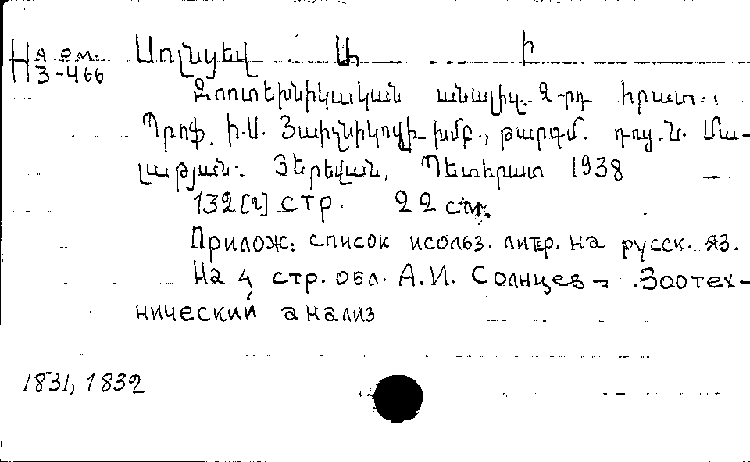 На арм.
3-466
Սոլնցեվ Ա. Ի
Զոոտեխնիկական անալիզ. 2-րդ հրատ.
Պրոֆ. Ի.Ս. խմբ., թարգմ. դոց. Ն. Մա-
լաթյան. Յերեվան, Պետհրատ 1938
132[2] стр. 22 см.
Прилож. список исольз. литр. на русск. яз.
На 4 стр. обл. А.И. Солнцев - Зоотех-
нический анализ
1831, 1832